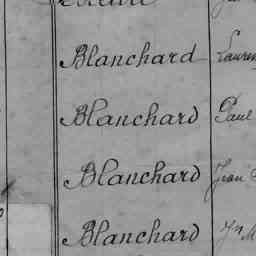 Blanchard Lauren
Blanchard Paul
Blanchard Jean
Blanchard Jn M